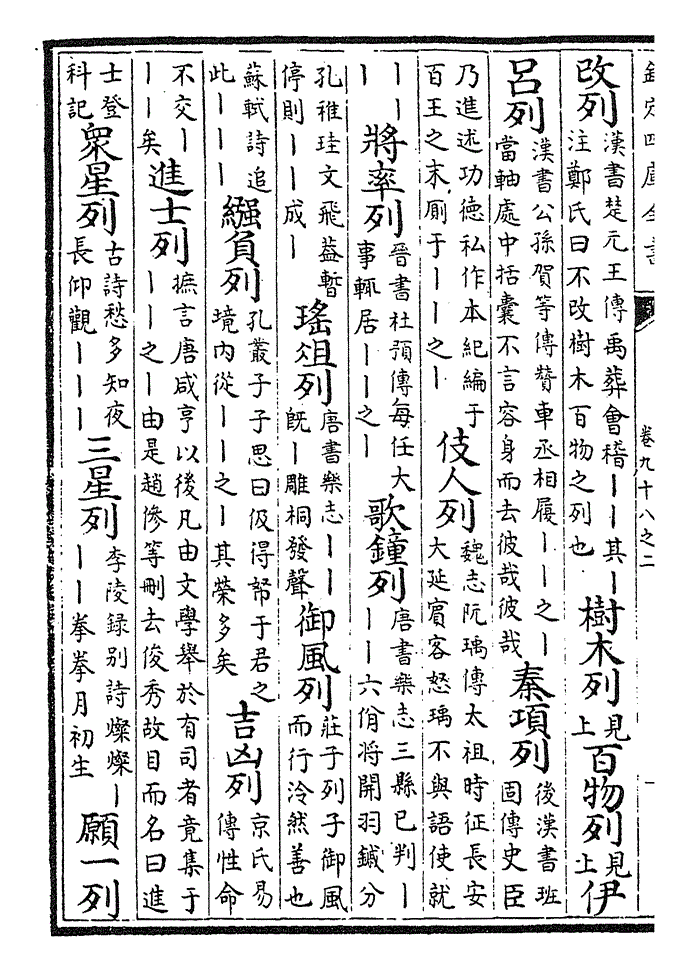 欽定四庫全書 卷九十八之二
改列漢書楚元王傳禹葬會稽丨丨其丨注鄭氏曰不改樹木百物之列也樹木列見上百物列見上伊
呂列漢書公孫賀等傳贊車丞相履丨丨之丨當軸處中括囊不言容身而去彼哉彼哉秦項列後漢書班固傳史臣
乃進述功德私作本紀編于百王之末厠于丨丨之丨伎人列魏志阮瑀傳太祖時征長安大延賓客怒瑀不與語使就
丨丨丨將率列晉書杜預傳每任大事輒居丨丨之丨歌鐘列唐書樂志三縣已判丨丨丨六佾將開羽鏚分
孔稚珪文飛葢暫停則丨丨成丨瑤俎列唐書樂志丨丨既丨雕桐發聲御風列莊子列子御風而行泠然善也
蘇軾詩追此丨丨丨繦負列孔叢子子思曰伋得帑于君之境内從丨丨之丨其榮多矣吉凶列京氏易傳性命
不交丨丨丨矣進士列摭言唐咸亨以後凡由文學舉於有司者竟集于丨丨之丨由是趙傪等刪去俊秀故目而名曰進
士登科記衆星列古詩愁多知夜長仰觀丨丨丨三星列李陵録别詩燦燦丨丨丨拳拳月初生願一列